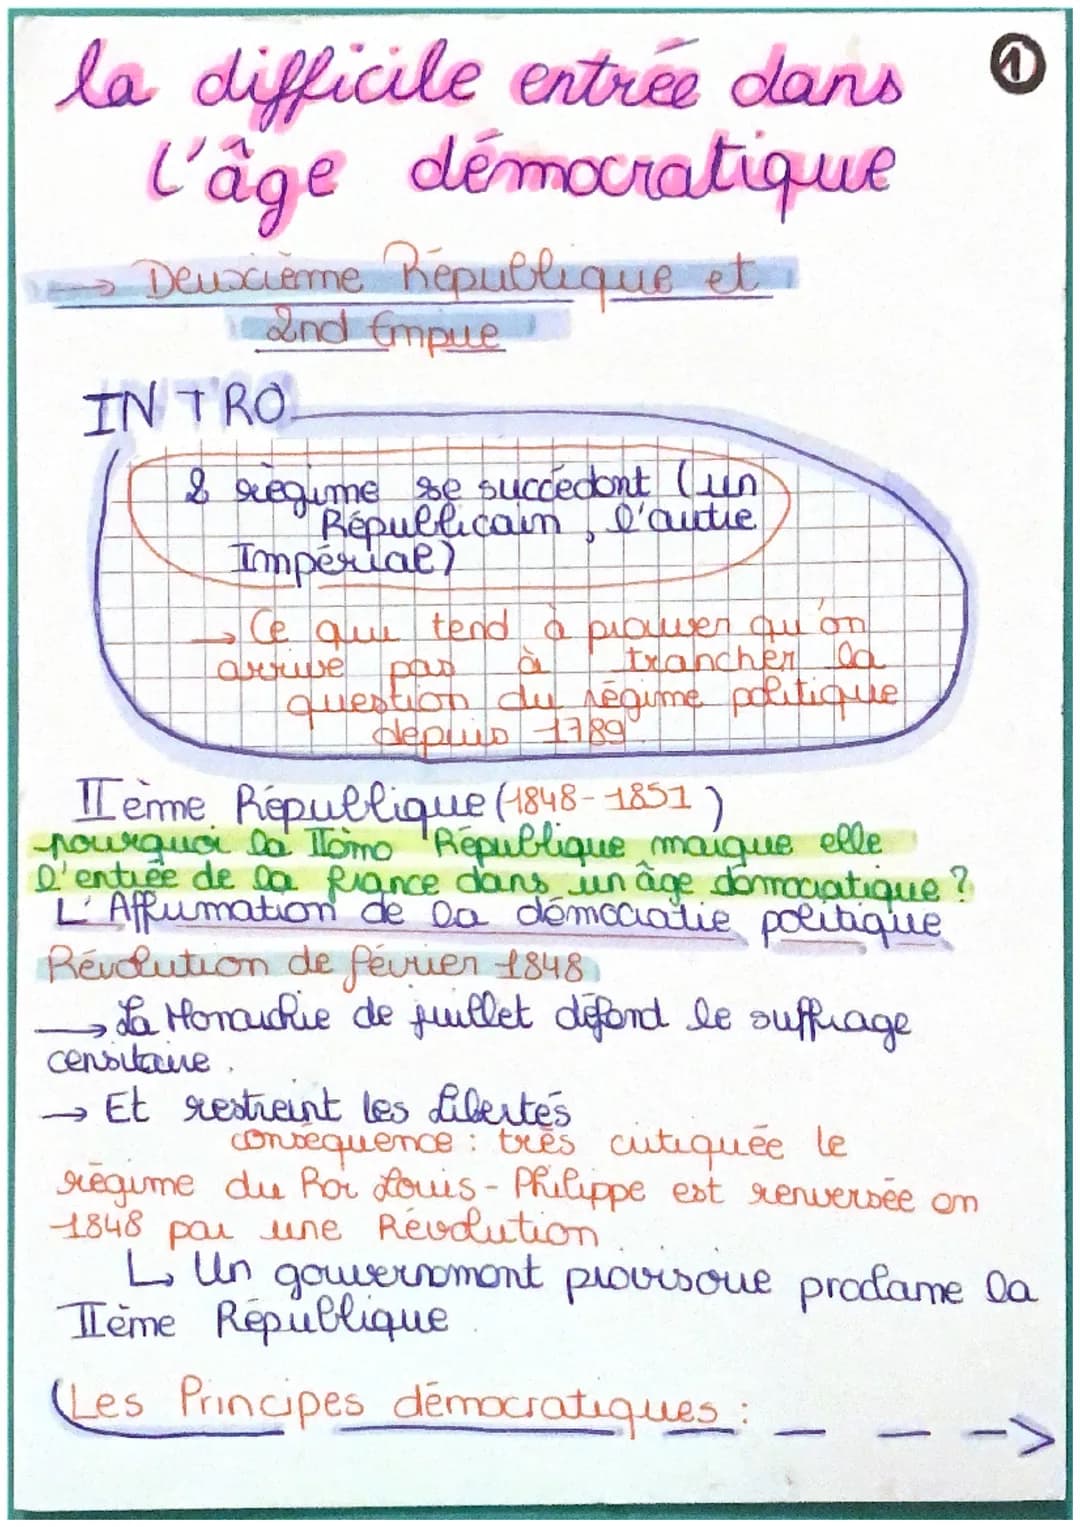 la difficile entrée dans
①
l'âge démocratique
→ Deuxième République et
2nd Empire
INTRO
2 règime se succèdent (un
Républicain, l'autre
Impérial)
→ Ce qui tend à prouver qu'on
arrive pas à trancher la
question du régime politique
depuis 1789.
IIème République (1848-1851)
pourquoi la IIème République marque elle
l'entrée de la france dans un âge démocratique ?
L'Affirmation de la démocratie politique
Révolution de février 1848
→ La Monarchie de juillet défend le suffrage
censitaire.
→ Et restreint les libertés
conséquence : très critiquée le
règime du Roi Louis-Philippe est renversée en
1848 par une Révolution.
↳ Un gouvernement provisoire proclame la
IIème République.
Les Principes démocratiques : - - ->